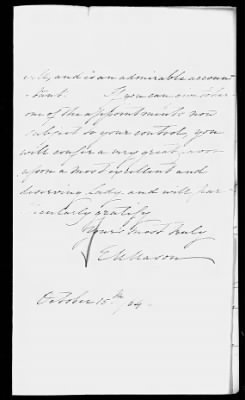 and is an admirable account-
tant. If you can give her
one of the appointments now
subject to your control, you
will confer a very great favor
upon a most excellent and
deserving Lady and will par-
ticularly gratify
Yours most truly
E Mason
October 15th /64.